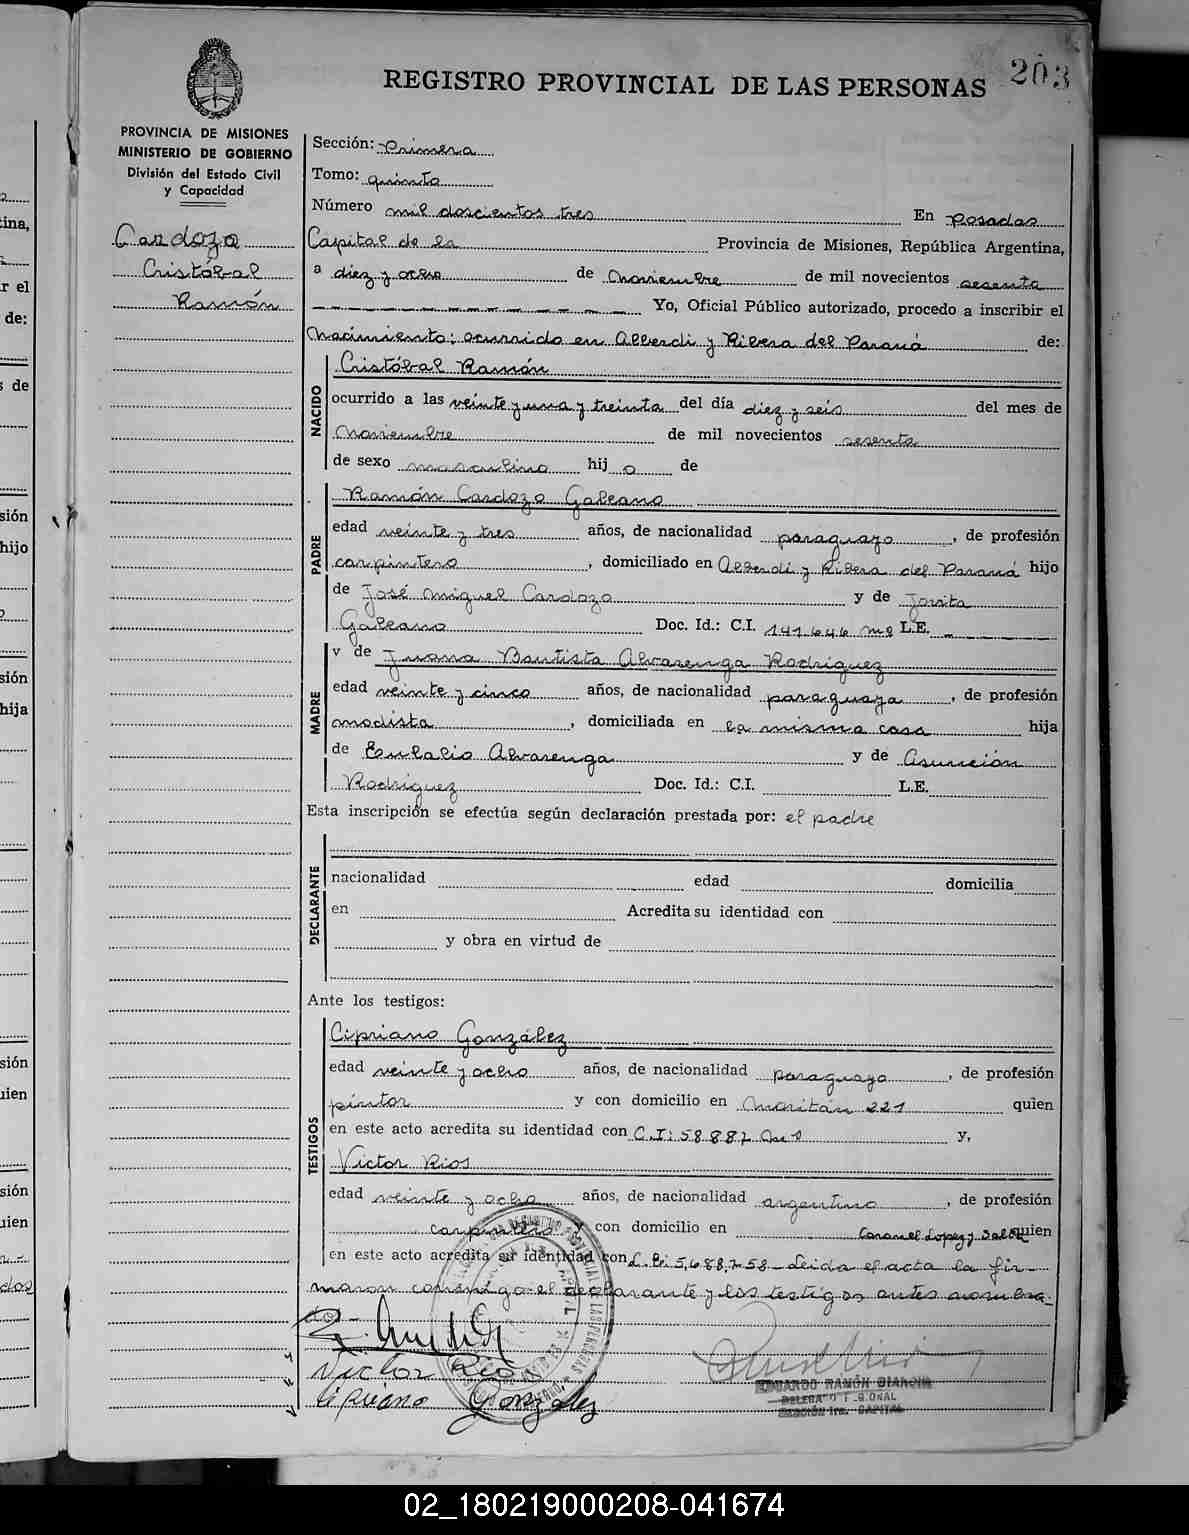 203
REGISTRO PROVINCIAL DE LAS PERSONAS
PROVINCIA DE MISIONES
MINISTERIO DE GOBIERNO
División del Estado Civil
y Capacidad
Cardozo
Cristóbal
Ramón
Sección: Primera
Tomo: quinto
Número mil doscientos tres En Posadas
Capital de la Provincia de Misiones, República Argentina,
a diez y ocho de Noviembre de mil novecientos sesenta
Yo, Oficial Público autorizado, procedo a inscribir el
Nacimiento: ocurrido en Alberdi y Ribera del Paraná de:
NACIDO
Cristóbal Ramón
ocurrido a las veinte y una y treinta del día diez y seis del mes de
Noviembre de mil novecientos sesenta
de sexo masculino hij o de
PADRE
Ramón Cardozo Galeano
edad veinte y tres años, de nacionalidad paraguayo, de profesión
carpintero, domiciliado en Alberdi y Ribera del Paraná hijo
de José Miguel Cardozo y de Jovita
Galeano Doc. Id.: C.I. 141.646 Mns L.E.
MADRE
y de Juana Bautista Alvarenga Rodríguez
edad veinte y cinco años, de nacionalidad paraguaya, de profesión
modista, domiciliada en la misma casa hija
de Eulalio Alvarenga y de Asunción
Rodríguez Doc. Id.: C.I. L.E.
Esta inscripción se efectúa según declaración prestada por: el padre
DECLARANTE
nacionalidad edad domicilia
en Acredita su identidad con
y obra en virtud de
Ante los testigos:
TESTIGOS
Cipriano González
edad veinte y ocho años, de nacionalidad paraguayo, de profesión
pintor y con domicilio en Moritán 221 quien
en este acto acredita su identidad con C.I: 58.887 y,
Victor Rios
edad veinte y ocho años, de nacionalidad argentino, de profesión
carpintero y con domicilio en Coronel Lopez y quien
en este acto acredita su identidad con L.E: 5,688,758 - Leida el acta la fir-
maron conmigo el declarante y los testigos antes nombra-
dos.-
Victor Rios
Cipriano González
EDUARDO RAMÓN
DELEGADO REGIONAL
SECCIÓN 1ra. CAPITAL
02_180219000208-041674